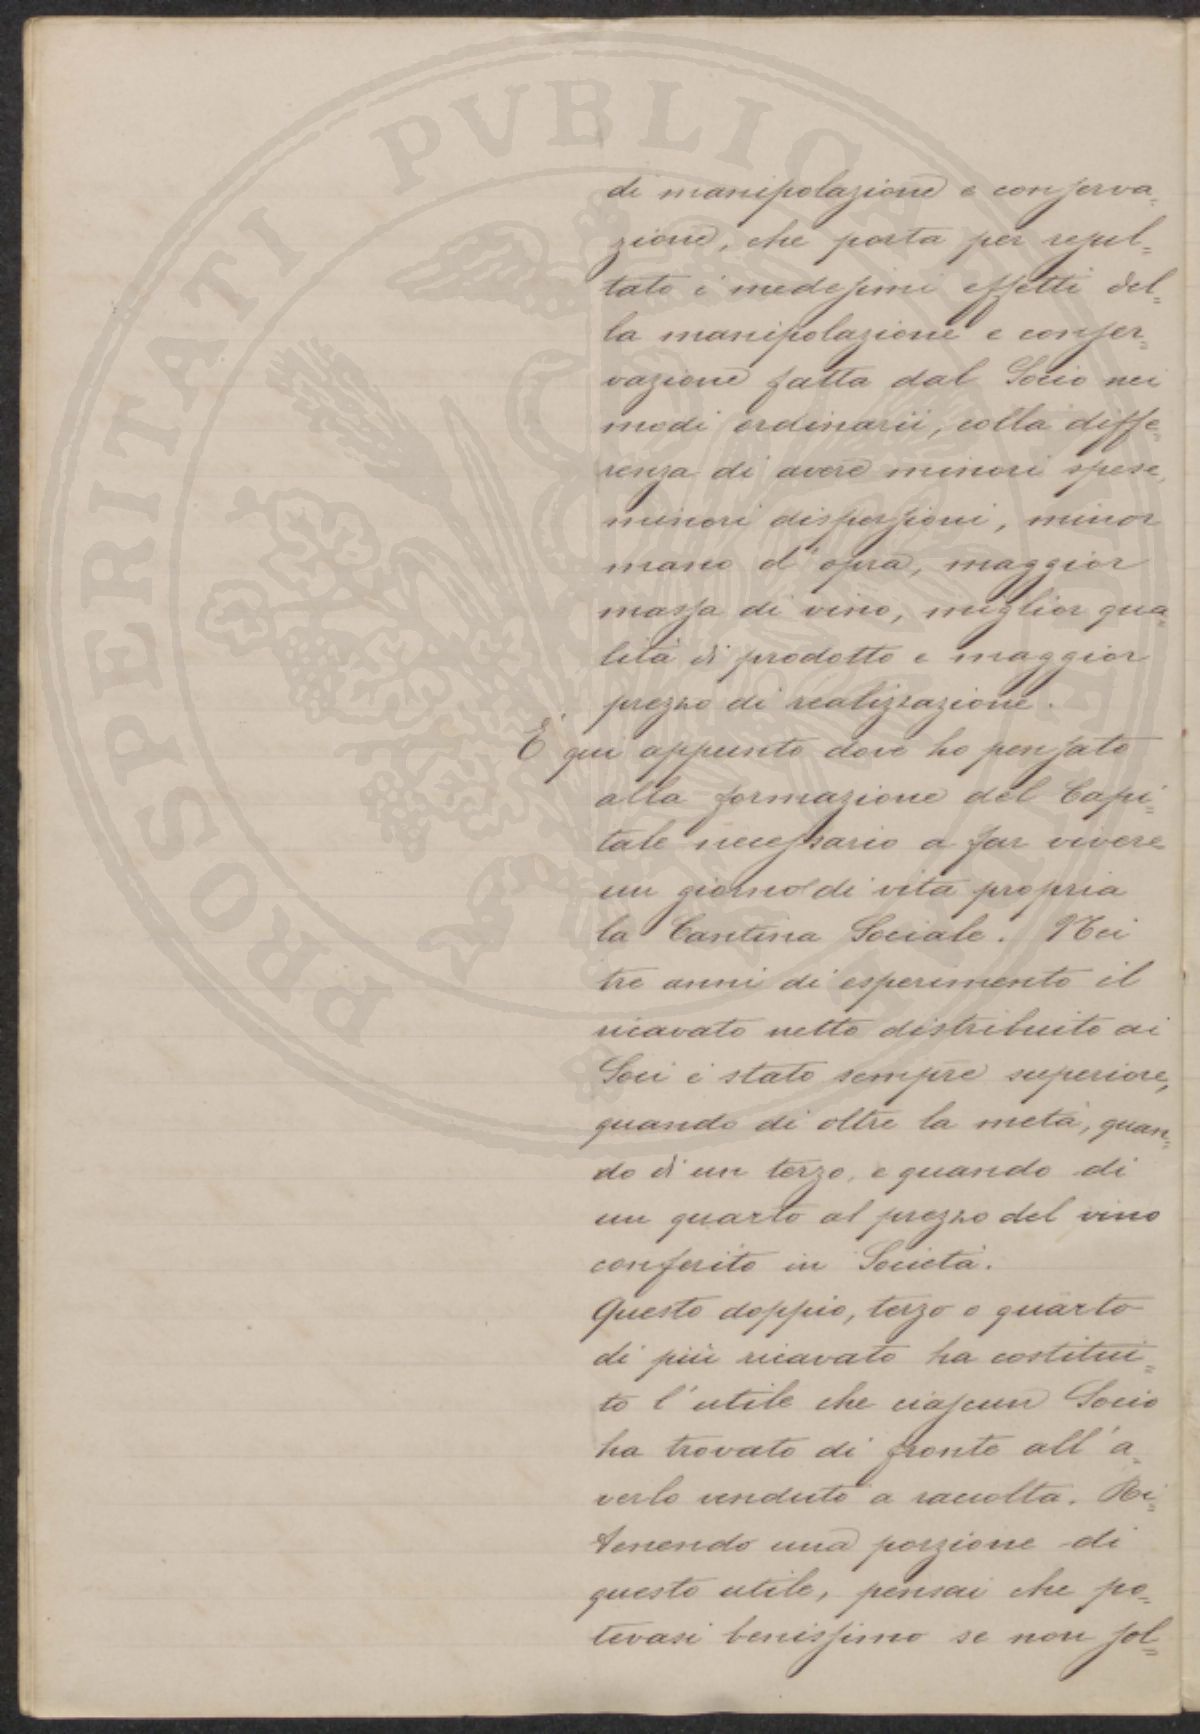 di manipolazione e conserva=
zione, che porta per resul=
tato i medesimi effetti del=
la manipolazione e conser=
vazione fatta dal Socio nei
modi ordinarii, colla diffe=
renza di avere minori spese,
minori dispersioni, minor
mano d'opra, maggior
massa di vino, miglior qua=
lità di prodotto e maggior
prezzo di realizzazione.
È qui appunto dove ho pensato
alla formazione del Capi=
tale necessario a far vivere
un giorno di vita propria
la Cantina Sociale. Nei
tre anni di esperimento il
ricavato netto distribuito ai
Soci è stato sempre superiore,
quando di oltre la metà, quan=
do di un terzo, e quando di
un quarto al prezzo del vino
conferito in Società.
Questo doppio, terzo o quarto
di più ricavato ha costitui=
to l'utile che ciascun Socio
ha trovato di fronte all'a=
verlo venduto a raccolta. Ri=
tenendo una porzione di
questo utile, pensai che po=
tevasi benissimo se non sol=
PROSPERITATI PVBLICAE